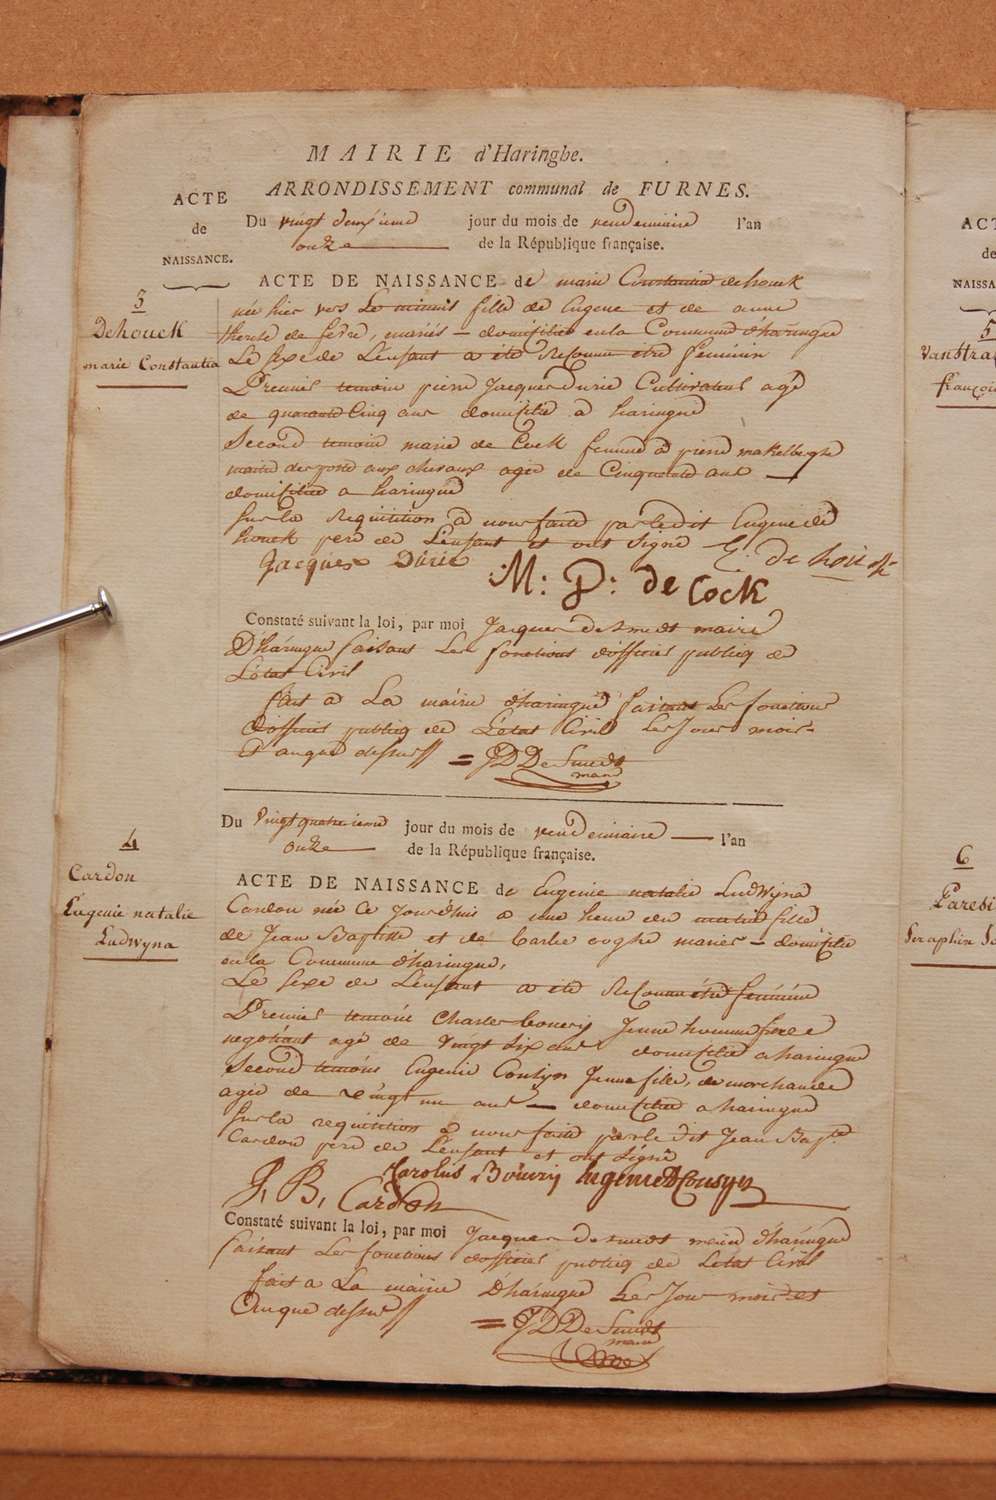 MAIRIE d'Haringhe.
ARRONDISSEMENT communal de FURNES.
ACTE
de
NAISSANCE.
Du vingt deuxieme jour du mois de vendemiaire l'an
onze de la République française.
ACTE DE NAISSANCE de marie Constantia dehouck
3
Dehouck
marie Constantia
née hier vers Le minuit fille de Eugene et de anne
therese de fevre, mariés — domiciliés en la Commune d'haringue
Le sexe de L'enfant a été Reconnu être feminin
Premier temoin pierre Jacques Durie Cultivateur agé
de quarante Cinq ans domicilié a haringue
Second temoin marie de Cock femme a pierre makelberghe
maitre des poste aux chevaux agée de Cinquante ans —
domiciliée a haringue
Sur la requisition a nous faite par le dit Eugene de
houck pere de L'enfant et ont signé E. de houck
Jacques Durie
M: P: de Cock
Constaté suivant la loi, par moi Jacques desmedt maire
D'haringue faisant Les fonctions d'officier publiq de
L'etat Civil
fait a La mairie d'haringue faisant Les fonctions
d'officier publiq de L'etat Civil Les Jour mois
Et an que dessus
= JD De Smedt
maire
Du vingt quatrieme jour du mois de vendemiaire — l'an
onze de la République française.
4
Cardon
Eugenie natalie
Ludwyna
ACTE DE NAISSANCE de Eugenie natalie Ludwyna
Cardon née Ce Jourdhui a une heure du matin fille
de Jean Baptiste et de barbe ooghe mariés — domiciliés
en la Commune d'haringue,
Le sexe de L'enfant a été Reconnu être feminine
Premier temoin Charles bouvry Jeune homme
negotiant agé de vingt six ans domicilié a haringue
Second temoin Eugenie Cousyn Jeune fille, de marchande
agée de vingt un ans — domiciliée a haringue
Sur la requisition a nous faite par le dit Jean Bapte
Cardon pere de L'enfant et ont signé
J, B, Cardon Karolus Bouvry Eugenie Cousyn
Constaté suivant la loi, par moi Jacques desmedt maire d'haringue
faisant Les fonctions d'officier publiq de L'etat Civil
fait a La mairie D'haringue Les Jour mois et
An que dessus
= JD De Smedt
maire
ACT
de
NAISSA
5
Vanstra
françoi
6
Paresi
Seraphin